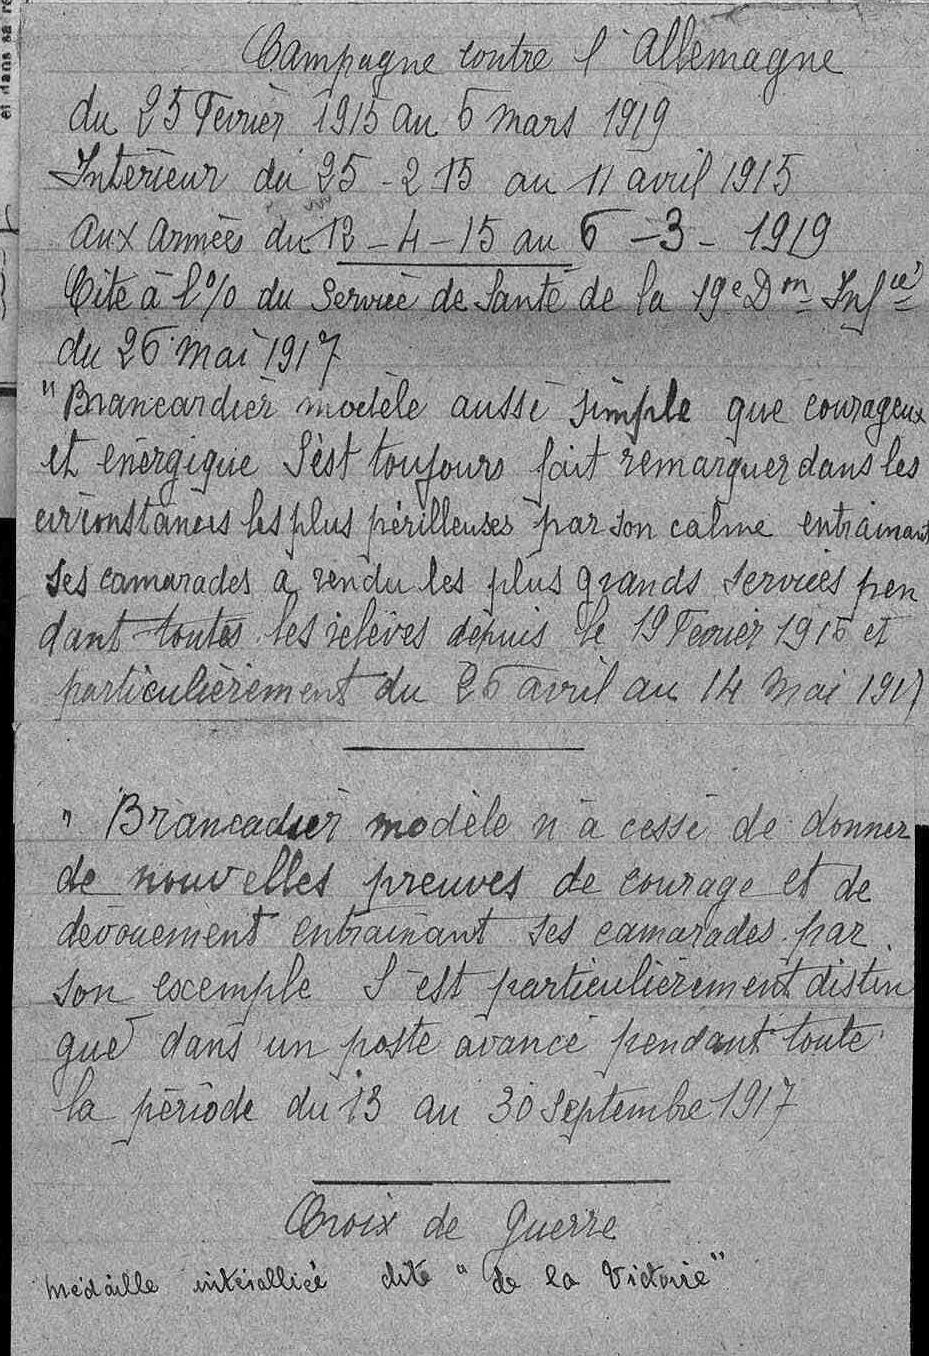 et dans sa ré
Campagne contre l'Allemagne
du 25 Février 1915 au 6 mars 1919
Intérieur du 25 - 2 15 au 11 avril 1915
aux armées du 12 - 4 - 15 au 6 - 3 - 1919
Cité à l'% du Service de Santé de la 19e Dm Infie
du 26 mai 1917
"Brancardier modèle aussi simple que courageux
et énergique S'est toujours fait remarquer dans les
circonstances les plus périlleuses par son calme entrainant
ses camarades a rendu les plus grands services pen
dant toutes les relèves depuis le 19 Fevrier 1916 et
particulièrement du 26 avril au 14 Mai 1917
" Brancadier modèle n'a cessé de donner
de nouvelles preuves de courage et de
dévouement entrainant ses camarades par
son exemple S'est particulièrement distin
gué dans un poste avancé pendant toute
la période du 13 au 30 Septembre 1917
Croix de Guerre
Médaille interalliée dite "de la Victoire"